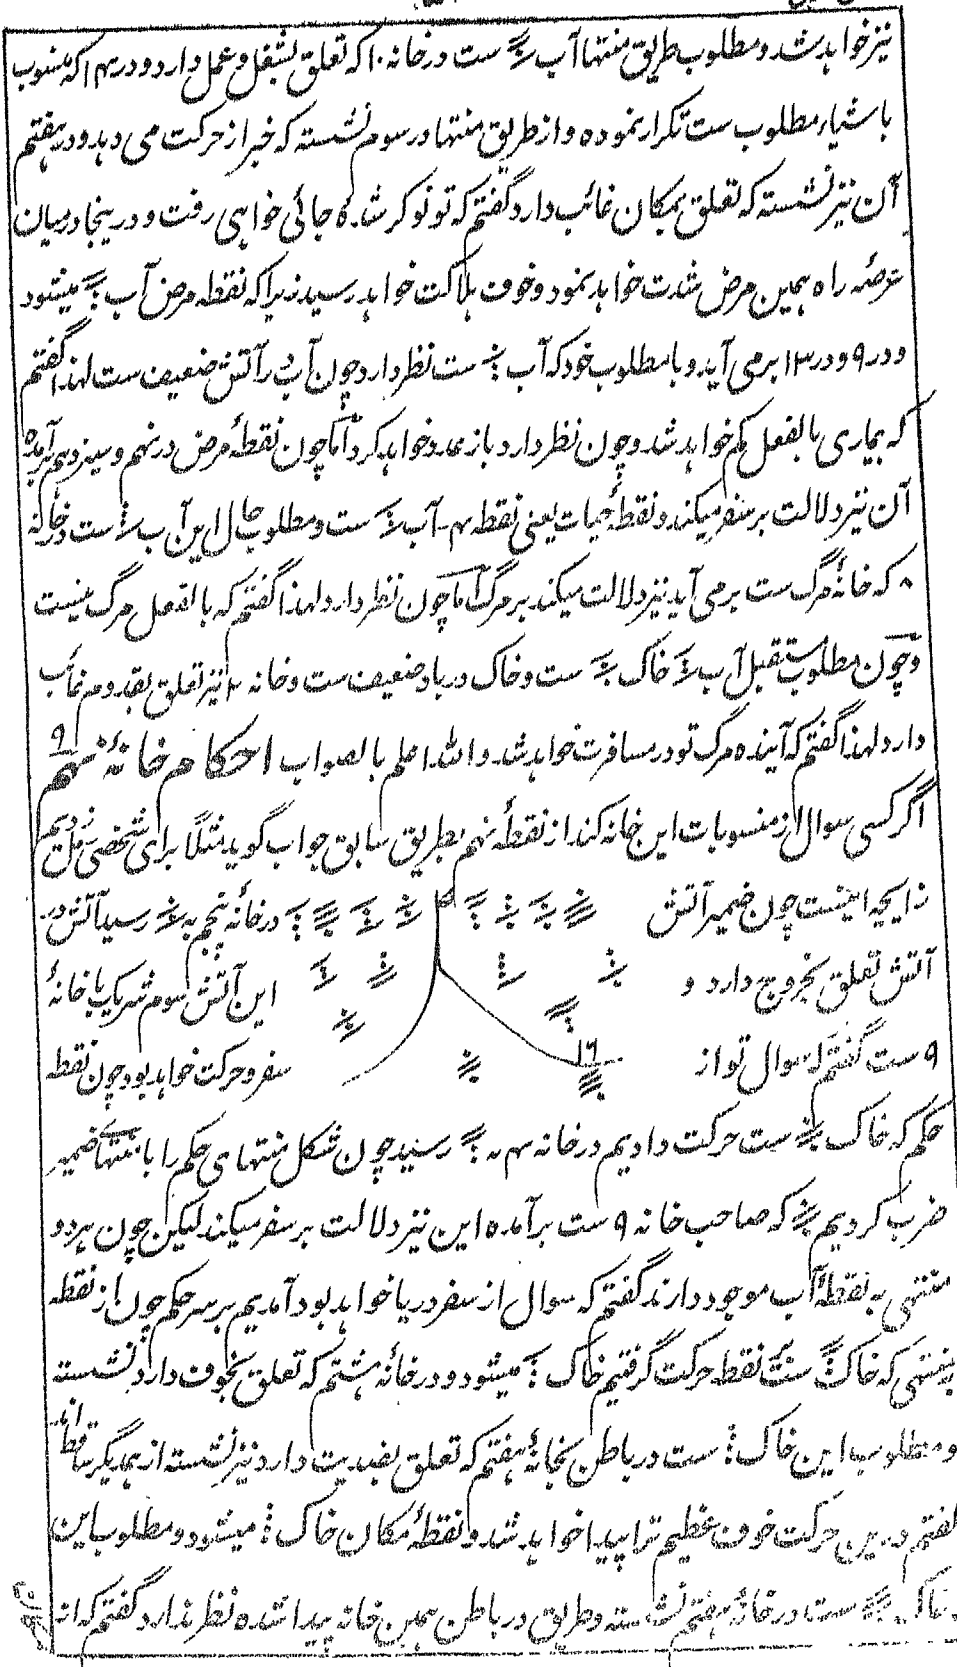 نیز خواهد شد و مطلوب طریق منتها آب ست در خانه ۱۰ که تعلق بشغل و عمل دارد و در ۱۴ که منسوب
باشیاء مطلوب ست تکرار نموده و از طریق منتها در سوم نشسته که خبر از حرکت می دهد و در هفتم
آن نیز نشسته که تعلق بمکان غائب دارد گفتم که تو نوکر شده جائی خواهی رفت و در ینجا درمیان
عرصهٔ راه همین مرض شدت خواهد نمود و خوف هلاکت خواهد رسید زیرا که نقطه مرض آب میشود
و در ۹ و در ۱۳ بر می آید و با مطلوب خود که آب ست نظر دارد و چون آب در آتش ضعیف ست لهذا گفتم
که بیماری بالفعل کم خواهد شد و چون نظر دارد باز عود خواهد کرد اما چون نقطهٔ مرض در نهم و سیزدهم برآمده
آن نیز دلالت بر سفر میکند و نقطهٔ حیات یعنی نقطه ۴ آب ست و مطلوب حال این آب ست در خانه
۸ که خانهٔ مرگ ست بر می آید نیز دلالت میکند بر مرگ اما چون نظر دارد لهذا گفتم که بالفعل مرگ نیست
و چون مطلوب مستقبل آب خاک ست و خاک در باد ضعیف ست و خانه ۲ نیز تعلق بقدوم غائب
دارد لهذا گفتم که آینده مرگ تو در مسافرت خواهد شد والله اعلم بالصواب احکام خانهٔ نهم ۹
اگر کسی سوال از منسوبات این خانه کند از نقطهٔ نهم بطریق سابق جواب گوید مثلاً برای شخصی رمل زدیم
زایچه اینست چون ضمیر آتش در خانهٔ پنجم به رسید آتش در
آتش تعلق بخروج دارد و این آتش سوم شریک با خانهٔ
۹ ست گفتم که سوال تو از ۱۶ سفر و حرکت خواهد بود چون نقطه
حکم که خاک ست حرکت دادیم در خانه ۴ به رسید چون شکل منتهای حکم را با منتهای ضمیر
ضرب کردیم که صاحب خانه ۹ ست برآمده این نیز دلالت بر سفر میکند لیکن چون هر دو
منتهی به نقطهٔ آب موجود دارند گفتم که سوال از سفر دریا خواهد بود آمدیم بر سر حکم چون از نقطه
منتهی که خاک ست نقطه حرکت گرفتیم خاک میشود و در خانهٔ هشتم که تعلق بخوف دارد نشسته
و مطلوب این خاک ست در باطن بخانهٔ هفتم که تعلق بضدیت دارد نیز نشسته از همدیگر ساقط اند
گفتم درین حرکت خوف عظیم ترا پیدا خواهد شد و نقطهٔ مکان خاک میشود و مطلوب این
خاک ست در خانهٔ هفتم نشسته و طریق در باطن همین خانه پیدا شده نظر ندارد گفتم که از